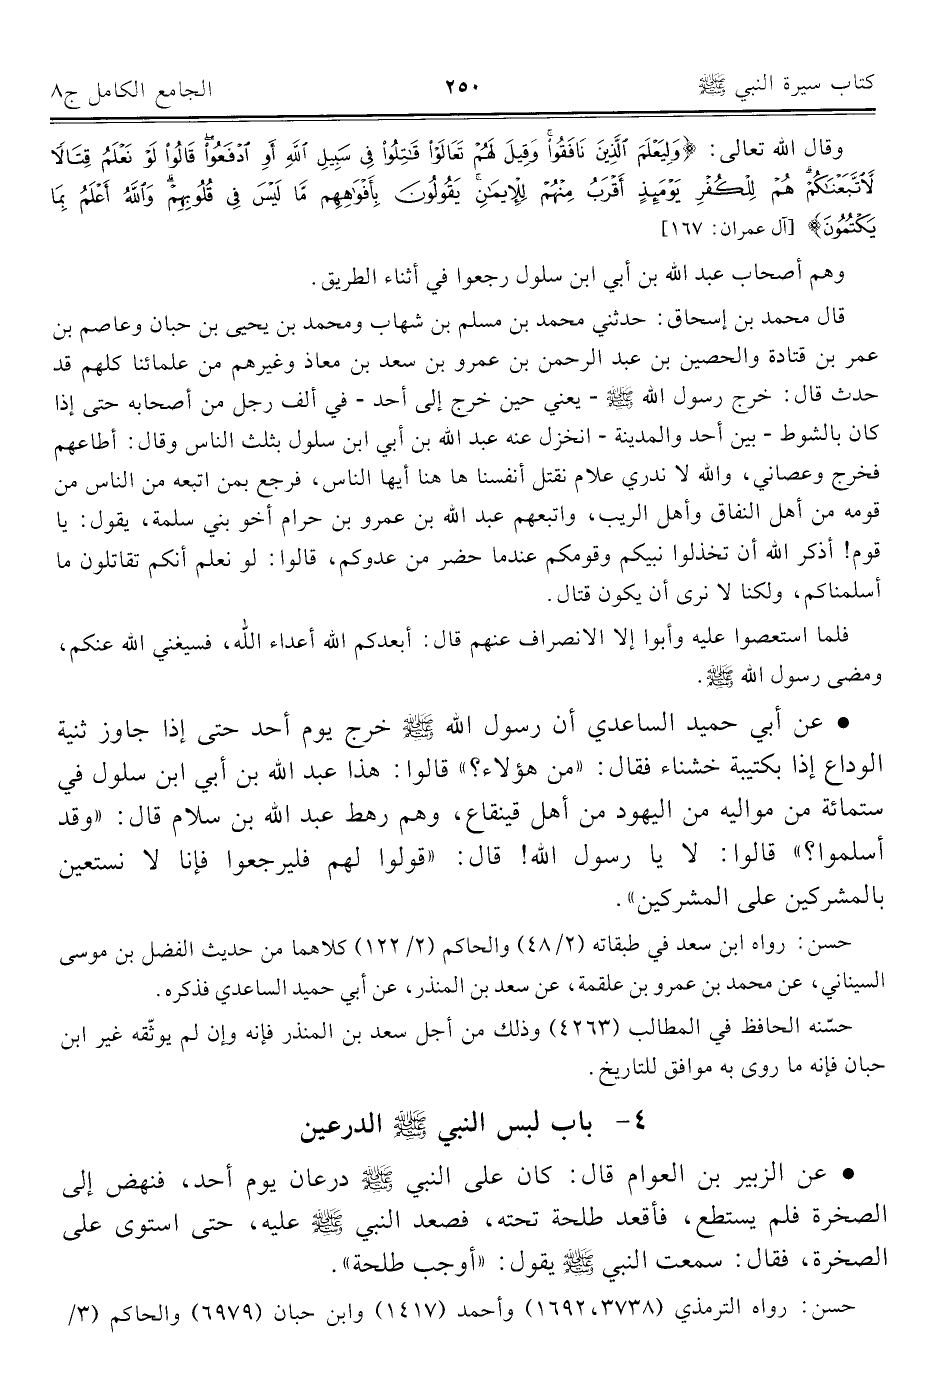 كتاب سيرة النبي ﷺ ٢٥٠ الجامع الكامل ج٨
وقال الله تعالى: ﴿وَلِيَعْلَمَ الَّذِينَ نَافَقُوا۟ وَقِيلَ لَهُمْ تَعَالَوْا۟ قَٰتِلُوا۟ فِي سَبِيلِ اللَّهِ أَوِ ادْفَعُوا۟ قَالُوا۟ لَوْ نَعْلَمُ قِتَالًا
لَّاتَّبَعْنَٰكُمْ هُمْ لِلْكُفْرِ يَوْمَئِذٍ أَقْرَبُ مِنْهُمْ لِلْإِيمَٰنِ يَقُولُونَ بِأَفْوَٰهِهِم مَّا لَيْسَ فِي قُلُوبِهِمْ وَاللَّهُ أَعْلَمُ بِمَا
يَكْتُمُونَ﴾ [آل عمران: ١٦٧]
وهم أصحاب عبد الله بن أبي ابن سلول رجعوا في أثناء الطريق.
قال محمد بن إسحاق: حدثني محمد بن مسلم بن شهاب ومحمد بن يحيى بن حبان وعاصم بن
عمر بن قتادة والحصين بن عبد الرحمن بن عمرو بن سعد بن معاذ وغيرهم من علمائنا كلهم قد
حدث قال: خرج رسول الله ﷺ - يعني حين خرج إلى أحد - في ألف رجل من أصحابه حتى إذا
كان بالشوط - بين أحد والمدينة - انخزل عنه عبد الله بن أبي ابن سلول بثلث الناس وقال: أطاعهم
فخرج وعصاني، والله لا ندري علام نقتل أنفسنا ها هنا أيها الناس، فرجع بمن اتبعه من الناس من
قومه من أهل النفاق وأهل الريب، واتبعهم عبد الله بن عمرو بن حرام أخو بني سلمة، يقول: يا
قوم! أذكر الله أن تخذلوا نبيكم وقومكم عندما حضر من عدوكم، قالوا: لو نعلم أنكم تقاتلون ما
أسلمناكم، ولكنا لا نرى أن يكون قتال.
فلما استعصوا عليه وأبوا إلا الانصراف عنهم قال: أبعدكم الله أعداء الله، فسيغني الله عنكم،
ومضى رسول الله ﷺ.
• عن أبي حميد الساعدي أن رسول الله ﷺ خرج يوم أحد حتى إذا جاوز ثنية
الوداع إذا بكتيبة خشناء فقال: «من هؤلاء؟» قالوا: هذا عبد الله بن أبي ابن سلول في
ستمائة من مواليه من اليهود من أهل قينقاع، وهم رهط عبد الله بن سلام قال: «وقد
أسلموا؟» قالوا: لا يا رسول الله! قال: «قولوا لهم فليرجعوا فإنا لا نستعين
بالمشركين على المشركين».
حسن: رواه ابن سعد في طبقاته (٢/ ٤٨) والحاكم (٢/ ١٢٢) كلاهما من حديث الفضل بن موسى
السيناني، عن محمد بن عمرو بن علقمة، عن سعد بن المنذر، عن أبي حميد الساعدي فذكره.
حسّنه الحافظ في المطالب (٤٢٦٣) وذلك من أجل سعد بن المنذر فإنه وإن لم يوثّقه غير ابن
حبان فإنه ما روى به موافق للتاريخ.
٤- باب لبس النبي ﷺ الدرعين
• عن الزبير بن العوام قال: كان على النبي ﷺ درعان يوم أحد، فنهض إلى
الصخرة فلم يستطع، فأقعد طلحة تحته، فصعد النبي ﷺ عليه، حتى استوى على
الصخرة، فقال: سمعت النبي ﷺ يقول: «أوجب طلحة».
حسن: رواه الترمذي (١٦٩٢،٣٧٣٨) وأحمد (١٤١٧) وابن حبان (٦٩٧٩) والحاكم (٣/